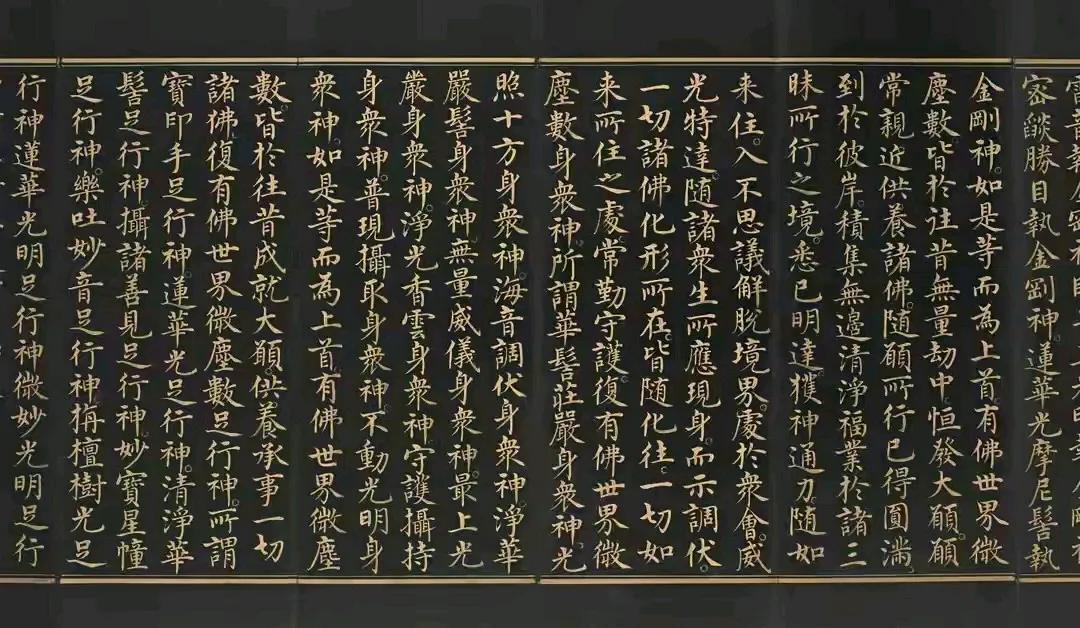 密燄勝目執金剛神。蓮華光摩尼髻執
金剛神。如是等而為上首。有佛世界微
塵數。皆於往昔無量劫中。恒發大願。願
常親近供養諸佛。随願所行。已得圓滿。
到於彼岸。積集無邊清淨福業。於諸三
昧所行之境。悉已明達。獲神通力。随如
来住。入不思議解脫境界。處於衆會。威
光特達。随諸衆生所應現身。而示調伏。
一切諸佛化形所在。皆随化往。一切如
来所住之處。常勤守護。復有佛世界微
塵數身衆神。所謂華髻莊嚴身衆神。光
照十方身衆神。海音調伏身衆神。淨華
嚴髻身衆神。無量威儀身衆神。最上光
嚴身衆神。淨光香雲身衆神。守護攝持
身衆神。普現攝取身衆神。不動光明身
衆神。如是等而為上首。有佛世界微塵
數。皆於往昔成就大願。供養承事一切
諸佛。復有佛世界微塵數足行神。所謂
寶印手足行神。蓮華光足行神。清淨華
髻足行神。攝諸善見足行神。妙寶星幢
足行神。樂吐妙音足行神。栴檀樹光足
行神。蓮華光明足行神。微妙光明足行